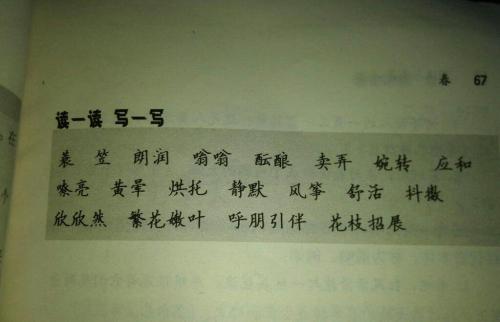 春 67
读一读 写一写
蓑 笠 朗润 嗡嗡 酝酿 卖弄 婉转 应和
嘹亮 黄晕 烘托 静默 风筝 舒活 抖擞
欣欣然 繁花嫩叶 呼朋引伴 花枝招展
在
个